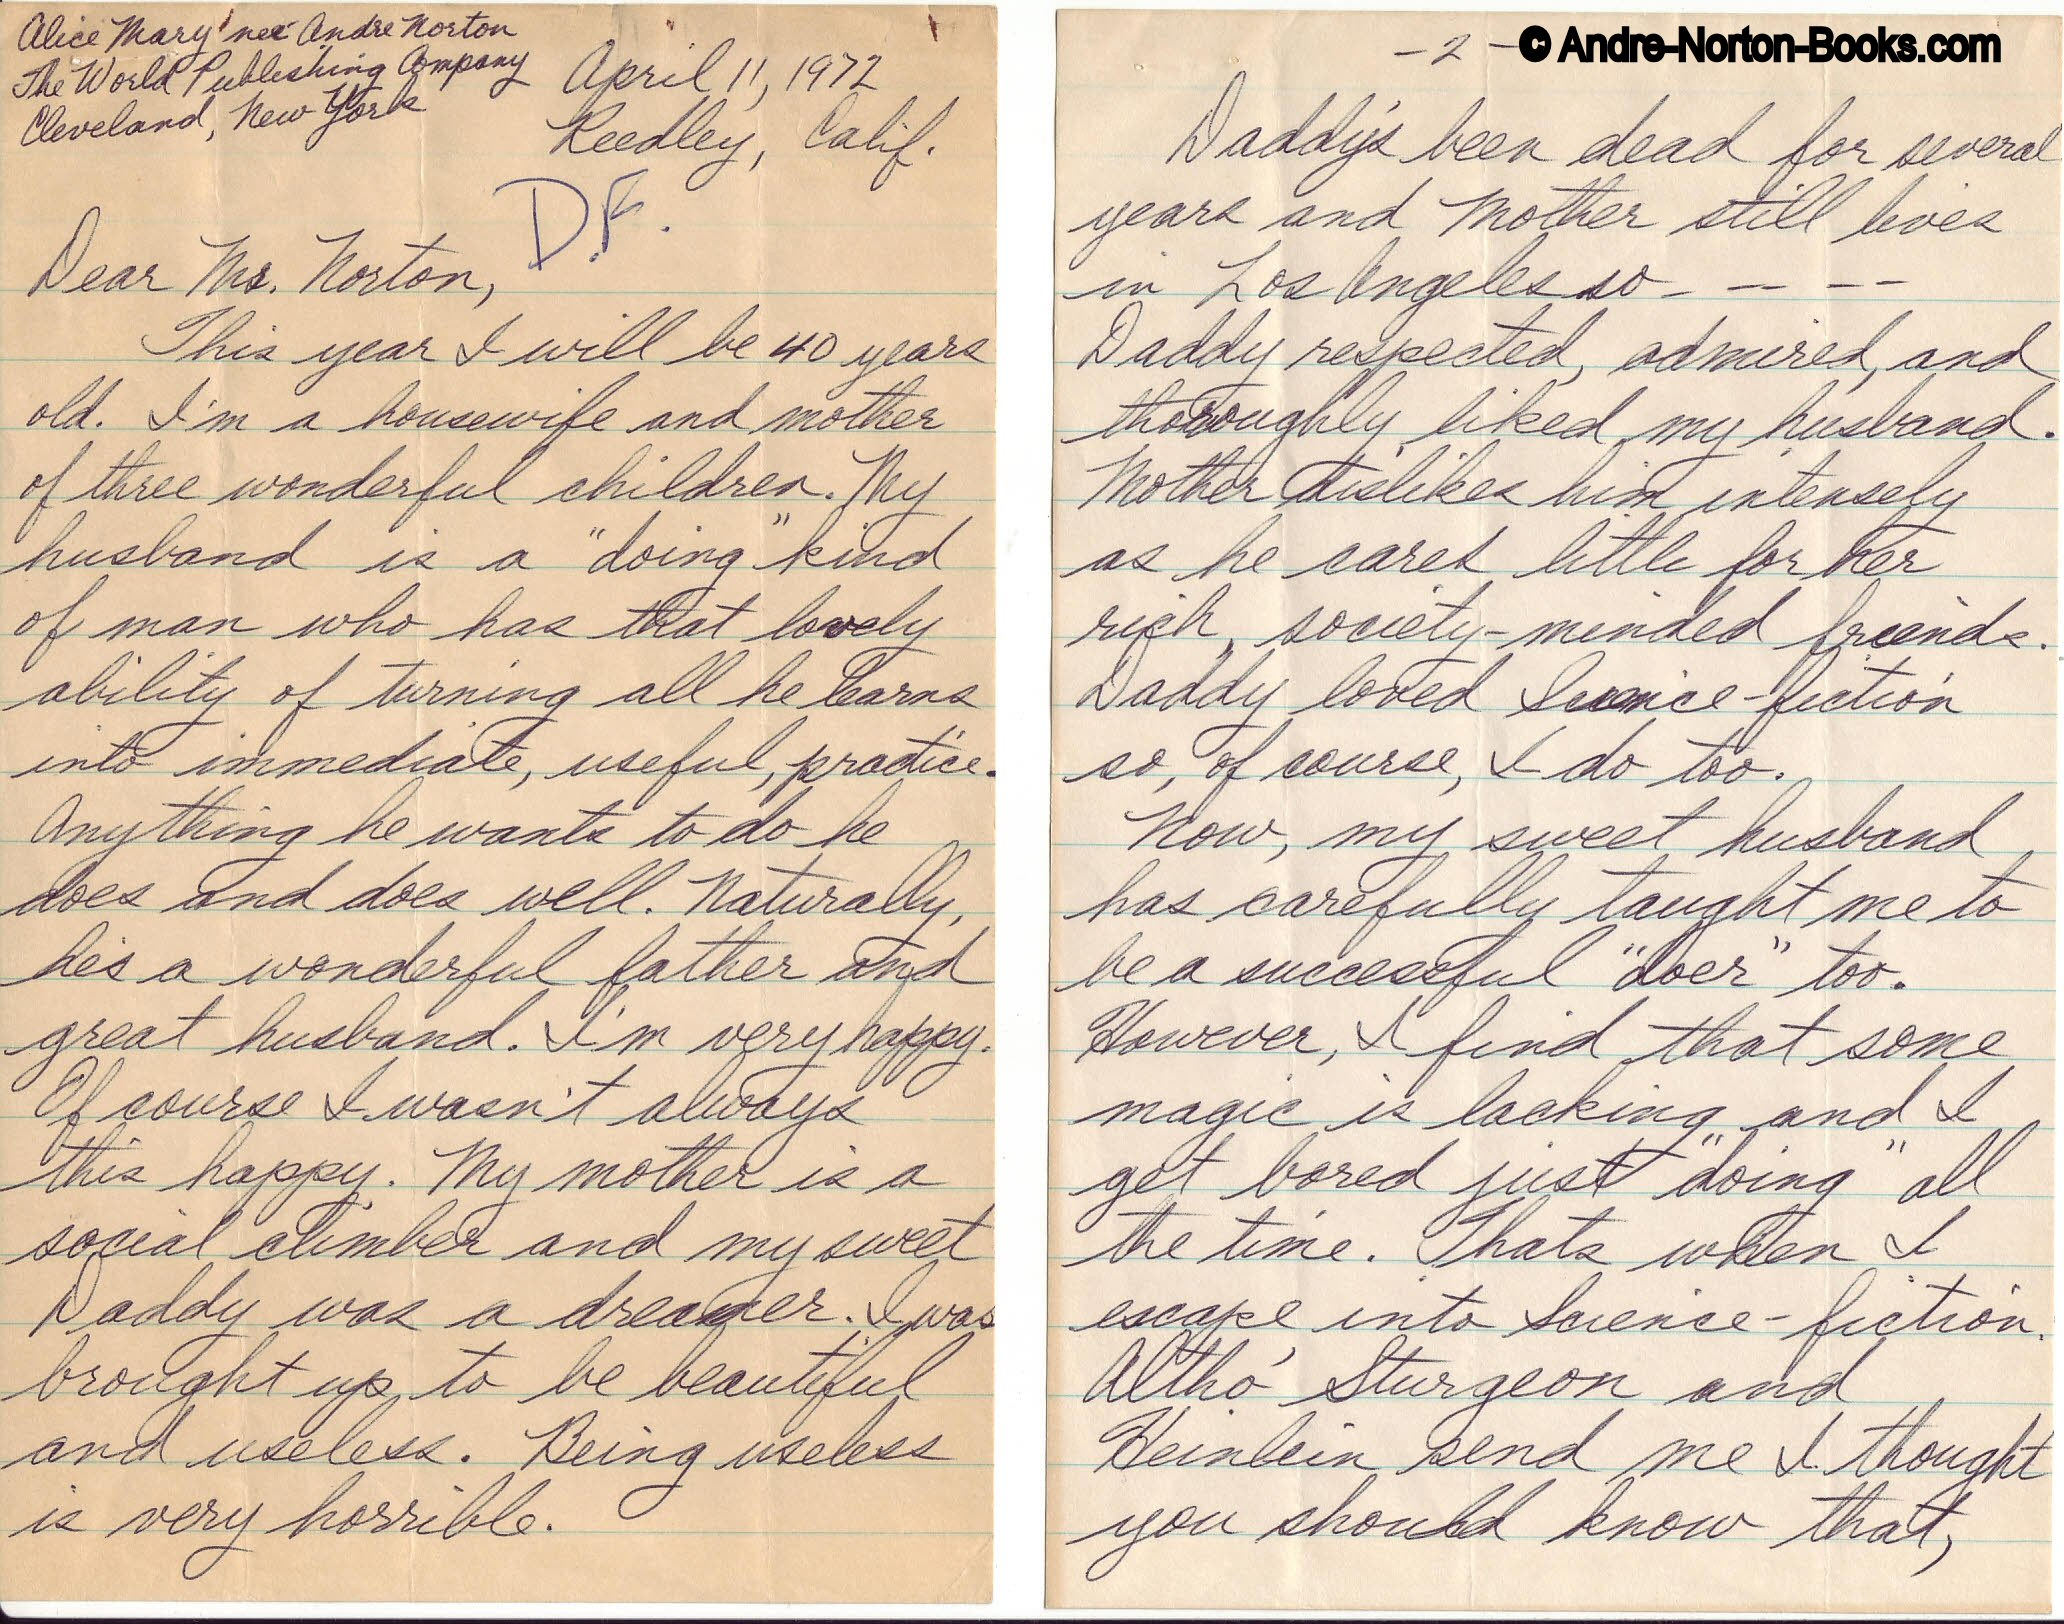 Alice Mary nee Andre Norton
The World Publishing Company
Cleveland, New York
April 11, 1972
Reedley, Calif.
D.F.
Dear Ms. Norton,
This year I will be 40 years
old. I'm a housewife and mother
of three wonderful children. My
husband is a "doing" kind
of man who has that lovely
ability of turning all he learns
into immediate, useful, practice.
Anything he wants to do he
does and does well. Naturally,
he's a wonderful father and
great husband. I'm very happy.
Of course I wasn't always
this happy. My mother is a
social climber and my sweet
Daddy was a dreamer. I was
brought up to be beautiful
and useless. Being useless
is very horrible.
- 2 -
© Andre-Norton-Books.com
Daddy's been dead for several
years and Mother still lives
in Los Angeles so - - - -
Daddy respected, admired, and
thoroughly liked my husband.
Mother dislikes him intensely
as he cares little for her
rich, society-minded friends.
Daddy loved Science-fiction
so, of course, I do too.
Now, my sweet husband
has carefully taught me to
be a successful "doer" too.
However, I find that some
magic is lacking and I
get bored just "doing" all
the time. Thats when I
escape into Science-fiction.
Altho' Sturgeon and
Heinlein send me I thought
you should know that,